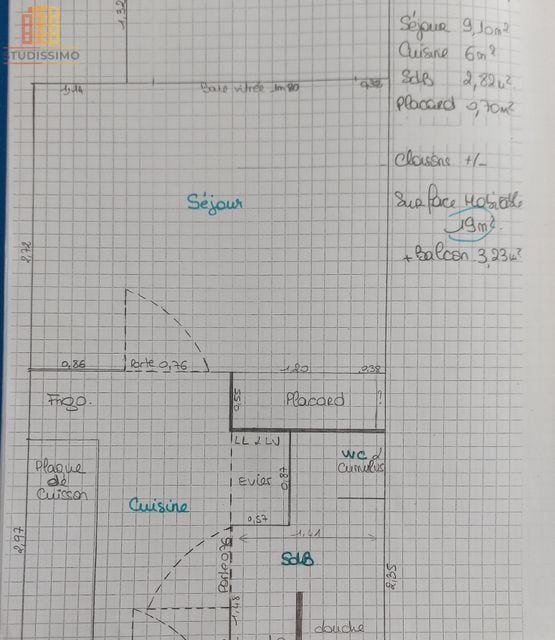 STUDISSIMO
1,32
Séjour 9,10m²
Cuisine 6m²
SdB 2,82m²
Placard 0,70m²
Cloisons +/-
Surface Habitable
19m².
+ Balcon 3,23m²
1,14
Baie vitrée 1m80
0,32
Séjour
2,72
0,86
Porte 0,76
1,20
0,38
Frigo.
0,55
Placard
?
LL & LV
WC &
Cumulus
Plaque
de
Cuisson
Evier
0,87
Cuisine
0,57
1,41
2,97
Porte 0,76
SdB
2,35
1,48
douche